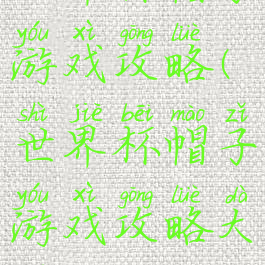 yóu xì gōng lüè
游戏攻略(
shì jiè bēi mào zǐ
世界杯帽子
yóu xì gōng lüè dà
游戏攻略大